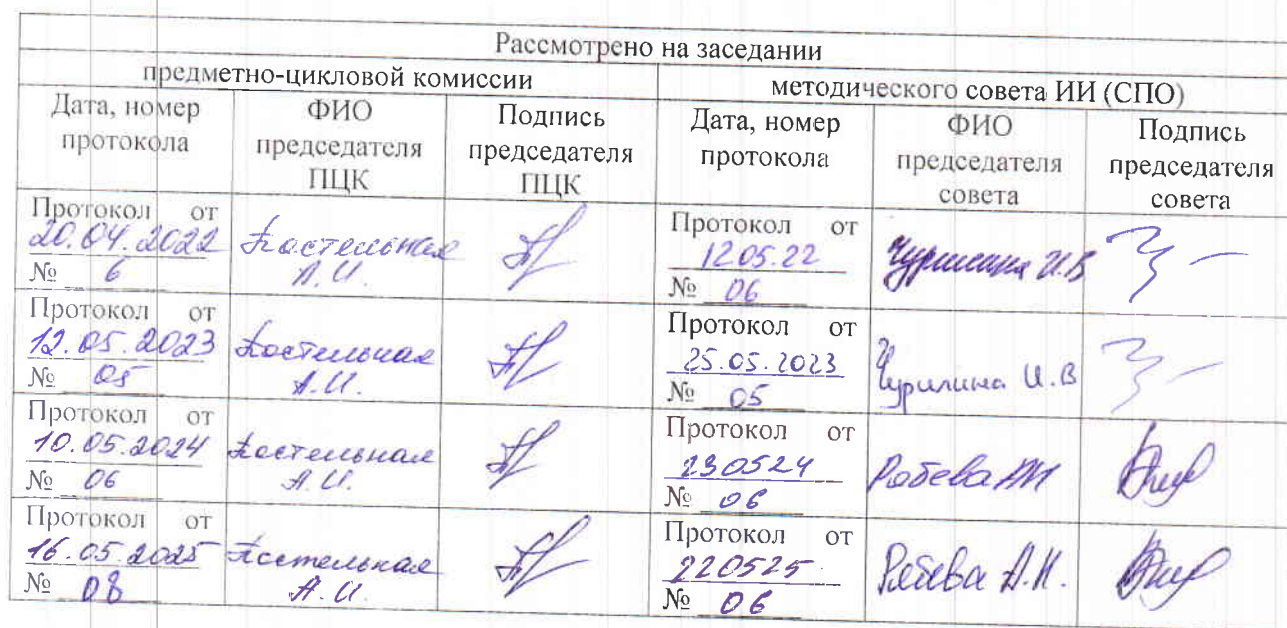 Рассмотрено на заседании
предметно-цикловой комиссии
методического совета ИИ (СПО)
Дата, номер
протокола
ФИО
председателя
ПЦК
Подпись
председателя
ПЦК
Дата, номер
протокола
ФИО
председателя
совета
Подпись
председателя
совета
Протокол от
20.04.2022
№ 6
Костельная
А.И.
Протокол от
12.05.22
№ 06
Чурилина И.В
Протокол от
12.05.2023
№ 05
Костельная
А.И.
Протокол от
25.05.2023
№ 05
Чурилина И.В
Протокол от
10.05.2024
№ 06
Костельная
А.И.
Протокол от
230524
№ 06
Протокол от
16.05.2025
№ 08
Костельная
А.И.
Протокол от
220525
№ 06